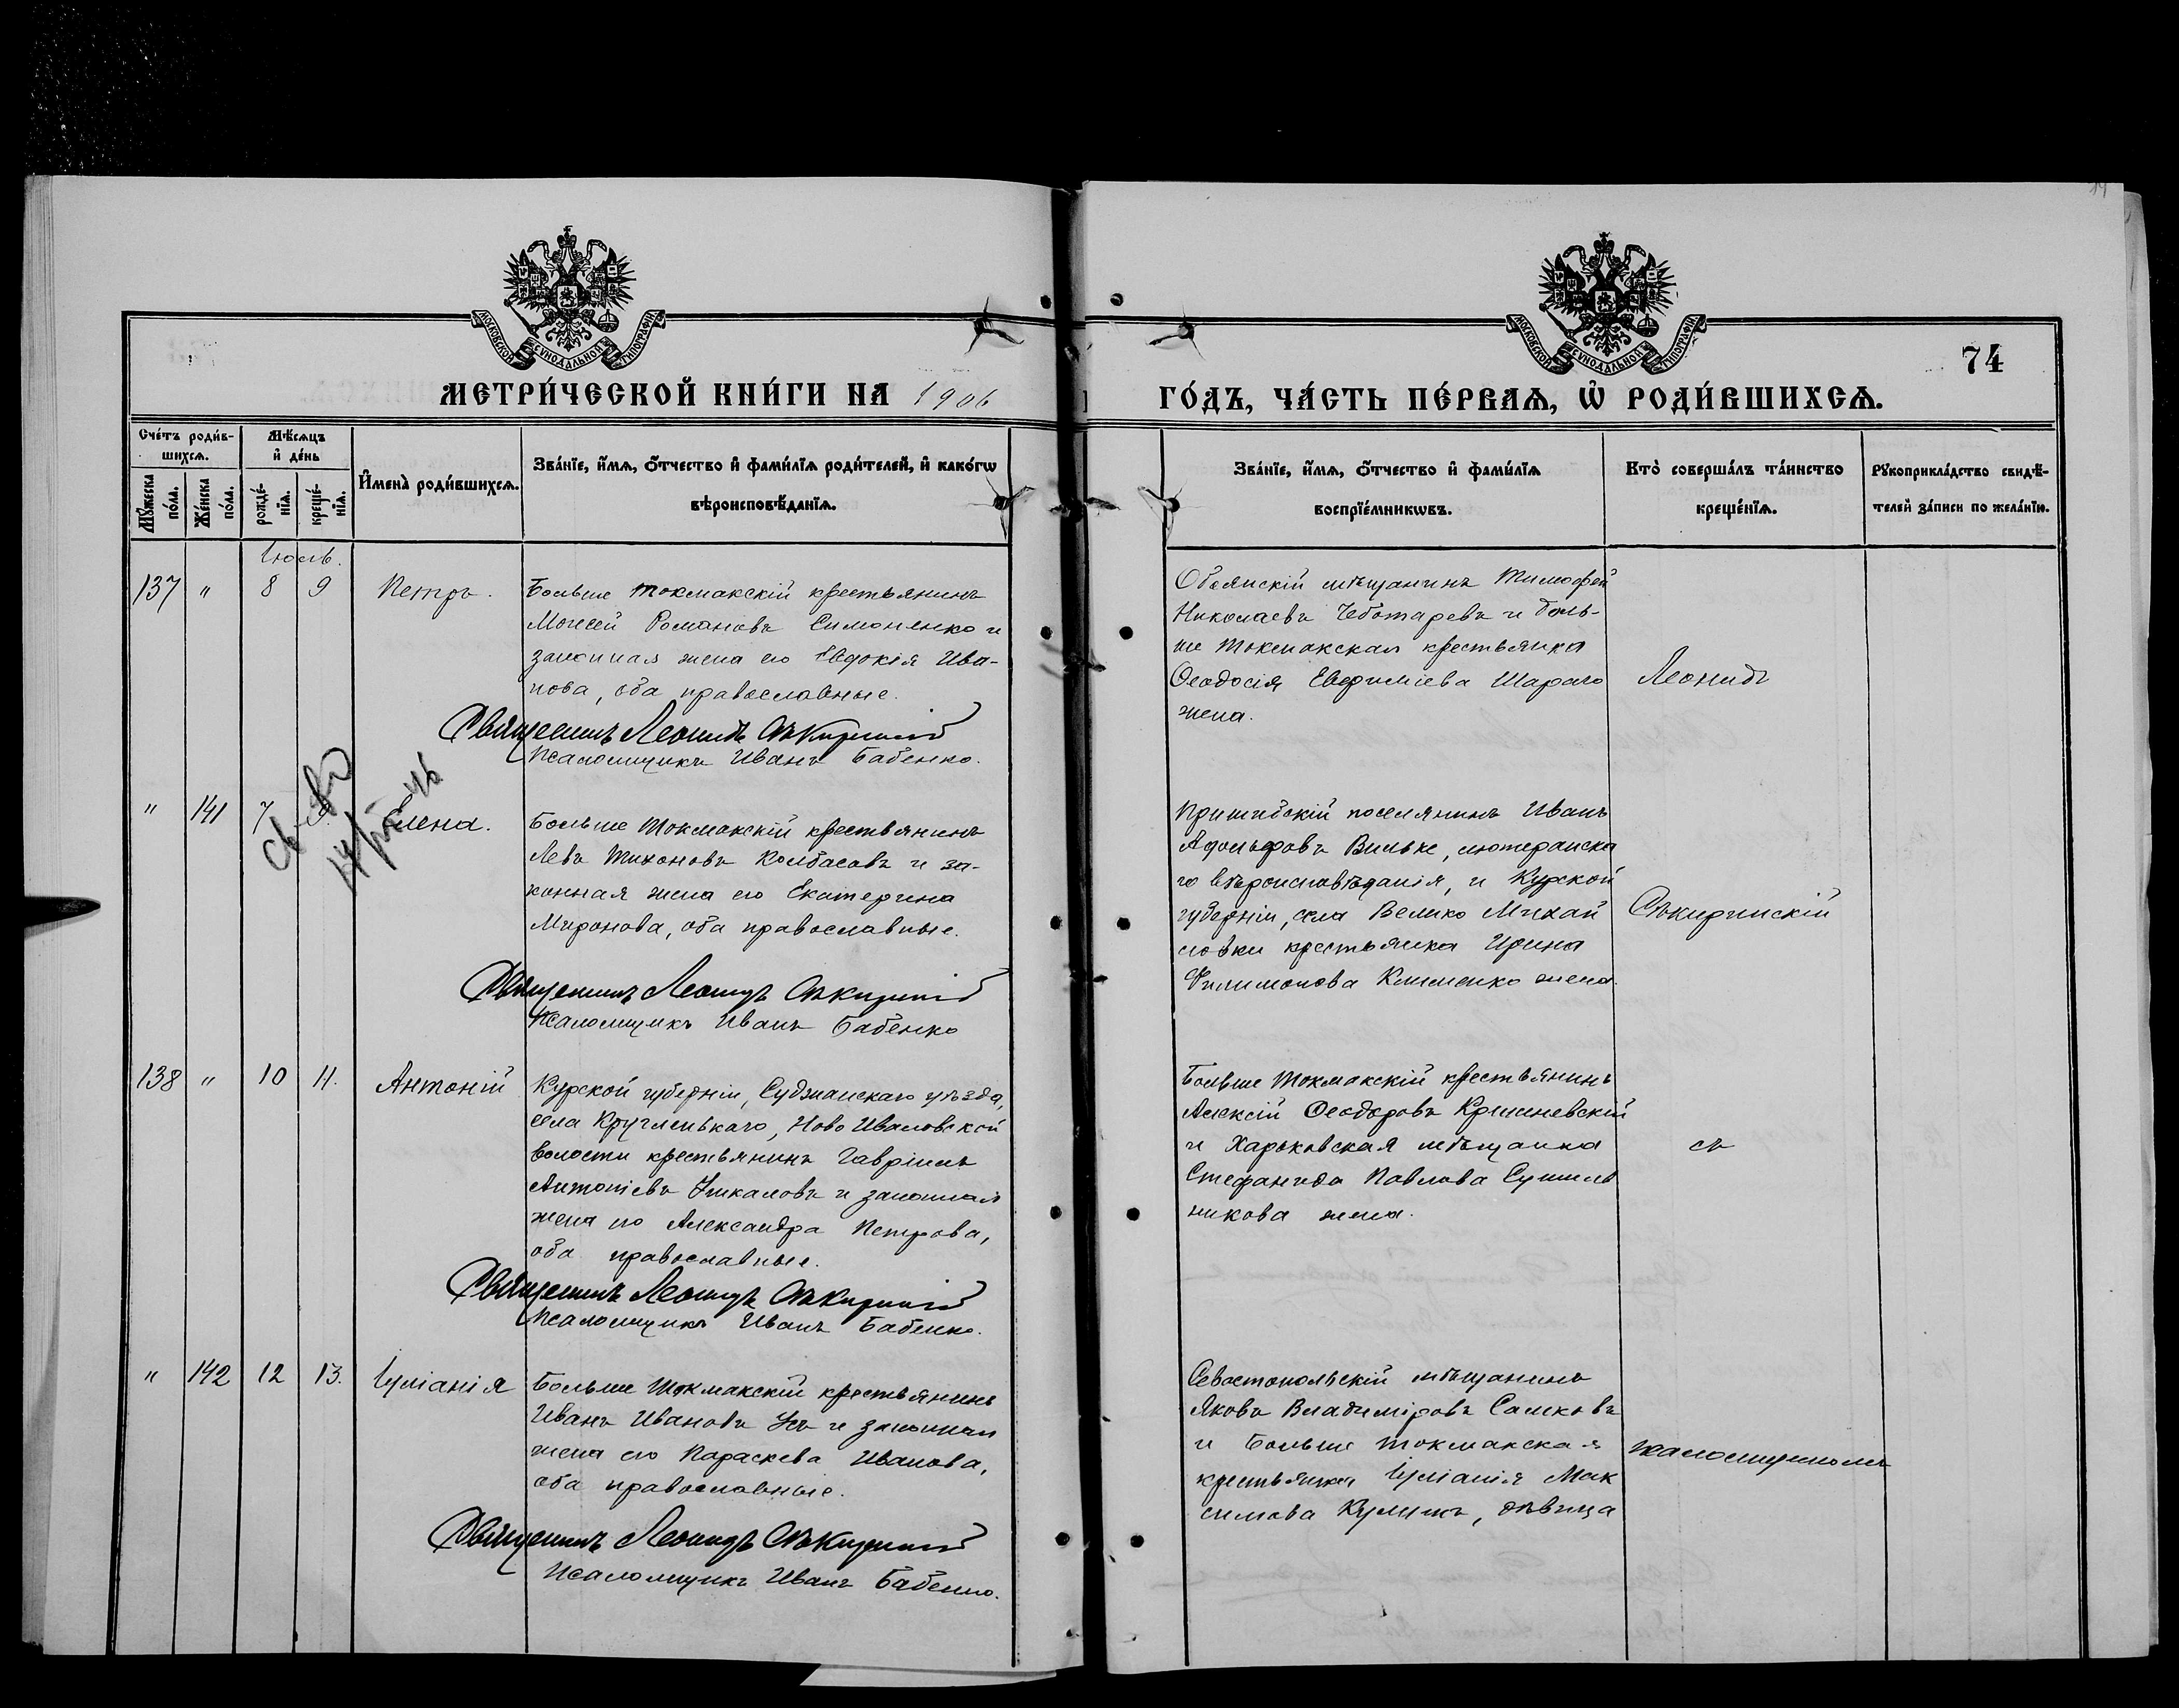 МЕТРИ́ЧЕСКОЙ КНИ́ГИ НА 1906
ГО́ДЪ, ЧА́СТЬ ПЕ́РВАѦ, Ѡ҆ РОДИ́ВШИХСѦ.
74
МОСКОВСКОЙ СѴНОДАЛЬНОЙ ТИПОГРАФІИ
МОСКОВСКОЙ СѴНОДАЛЬНОЙ ТИПОГРАФІИ
Сче́тъ роди́в-
шихсѧ.
Мꙋ́жеска по́ла.
Же́нска по́ла.
Мѣ́сѧцъ
и҆ де́нь
рожде́-
нїѧ.
креще́-
нїѧ.
И҆мена̀ роди́вшихсѧ.
Зва́нїе, и҆́мѧ, ѻ҆́тчество и҆ фами́лїѧ роди́телей, и҆ како́гѡ
вѣроисповѣ́данїѧ.
Зва́нїе, и҆́мѧ, ѻ҆́тчество и҆ фами́лїѧ
воспрїе́мникѡвъ.
Кто̀ соверша́лъ та́инство
креще́нїѧ.
Рꙋкоприкла́дство свидѣ́-
телей за́писи по жела́нїю.
Іюль.
137 " 8 9 Петръ.
Больше Токмакскій крестьянинъ
Моисей Романовъ Симоненко и
законная жена его Евдокія Ива-
нова, оба православные.
Священникъ Леонидъ Сѣкиринскій
Псаломщикъ Иванъ Бабенко.
Обоянскій мѣщанинъ Тимофей
Николаевъ Чеботаревъ и боль-
ше Токмакская крестьянка
Ѳеодосія Евфиміева Шараго
жена.
Леонидъ
" 141 7 Елена.
Больше Токмакскій крестьянинъ
Левъ Тихоновъ Колбасовъ и за-
конная жена его Екатерина
Миронова, оба православные.
Священникъ Леонидъ Сѣкиринскій
Псаломщикъ Иванъ Бабенко
Пришибскій поселянинъ Иванъ
Адольфовъ Вильке, лютеранска
го вѣроисповѣданія, и Курской
губерніи, села Велико Михай
ловки крестьянка Ирина
Филимонова Клименко жена.
Сѣкиринскій
138 " 10 11. Антоній
Курской губерніи, Суджанскаго уѣзда,
села Кругленькаго, Ново Ивановской
волости крестьянинъ Гавріилъ
Антоніевъ Ушкаловъ и законная
жена его Александра Петрова,
оба православные.
Священникъ Леонидъ Сѣкиринскій
Псаломщикъ Иванъ Бабенко.
Больше Токмакскій крестьянинъ
Алексій Ѳеодоровъ Кришневскій
и Харьковская мѣщанка
Стефанида Павлова Сушиль
никова жена.
съ
" 142 12 13. Іуліанія
Больше Токмакскій крестьянинъ
Иванъ Ивановъ Усъ и законная
жена его Параскева Иванова,
оба православные.
Священникъ Леонидъ Сѣкиринскій
Псаломщикъ Иванъ Бабенко.
Севастопольскій мѣщанинъ
Яковъ Владиміровъ Сашковъ
и Больше Токмакская
крестьянка Іуліанія Мак
симова Кулишъ, дѣвица
псаломщикомъ